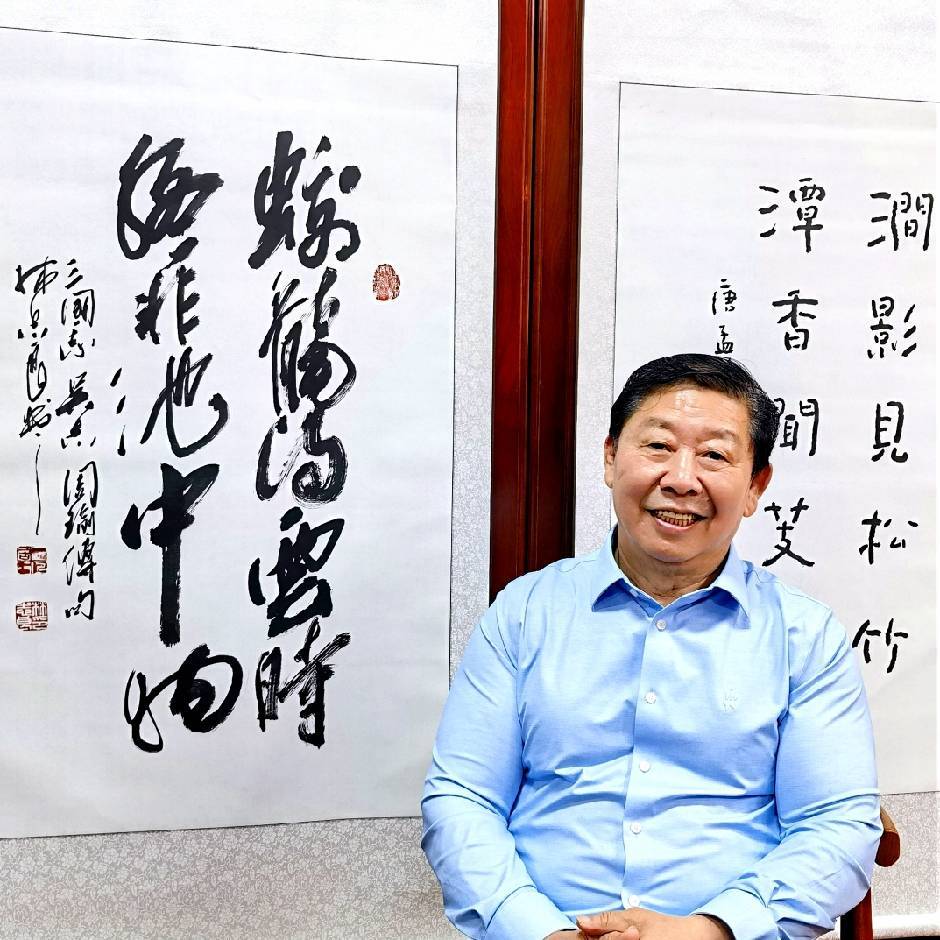 澗影見松竹
潭香聞芰
唐孟
蛟龍得雲時
終非池中物
三國志吳書周瑜傳句